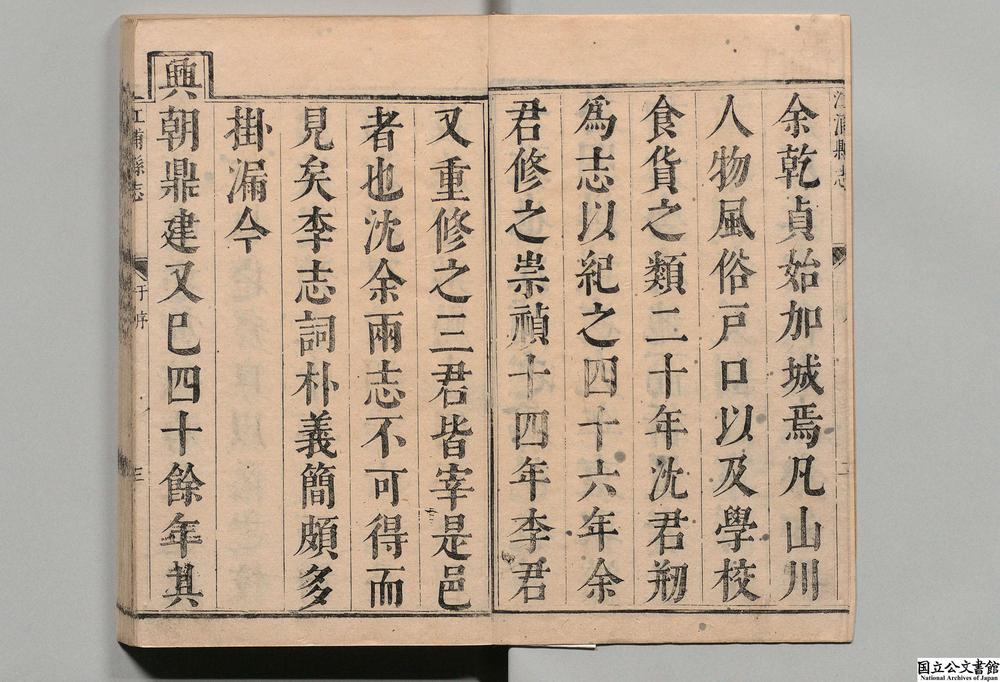 余乾貞始加城焉凡山川
人物風俗戸口以及學校
食貨之類二十年沈君剏
為志以紀之四十六年余
君修之崇禎十四年李君
又重修之三君皆宰是邑
者也沈余兩志不可得而
見矣李志詞朴義簡頗多
掛漏今
興朝鼎建又已四十餘年其
江浦縣志
序
三
国立公文書館
National Archives of Japan